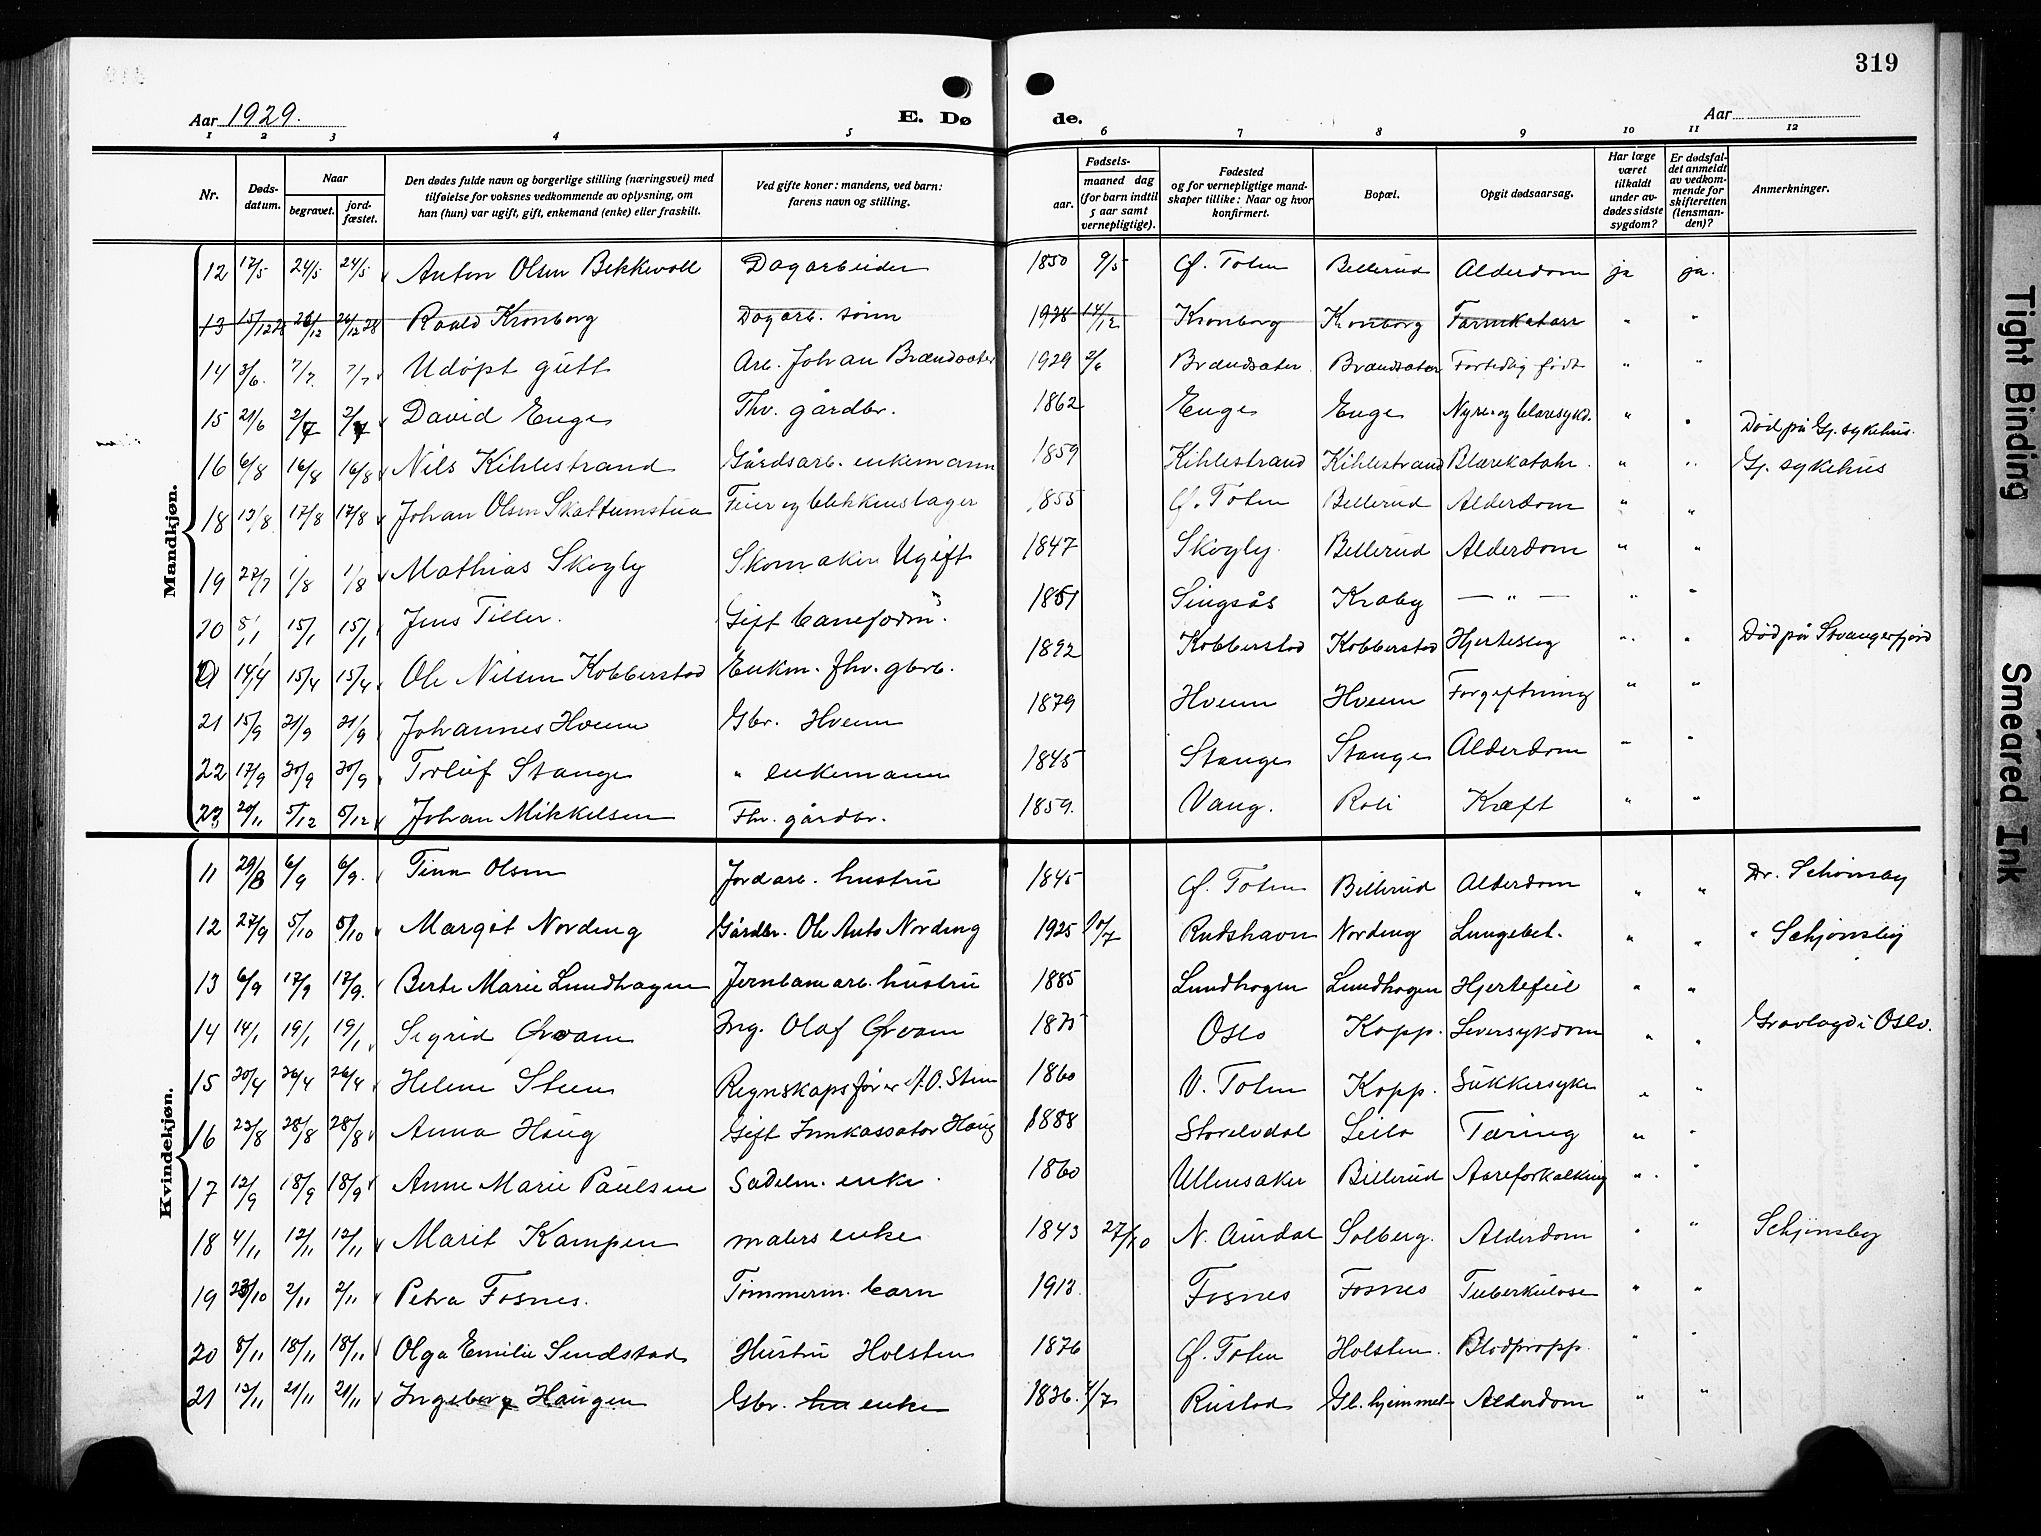 319
Aar 1929.
E. Dø
de.
Aar
1 2 3 4 5 6 7 8 9 10 11 12
Nr.
Døds-datum.
Naar
begravet.
jord-fæstet.
Den dødes fulde navn og borgerlige stilling (næringsvei) med tilføielse for voksnes vedkommende av oplysning, om han (hun) var ugift, gift, enkemand (enke) eller fraskilt.
Ved gifte koner: mandens, ved barn: farens navn og stilling.
Fødsels-
aar.
maaned dag (for barn indtil 5 aar samt vernepligtige).
Fødested og for vernepligtige mandskaper tillike: Naar og hvor konfirmert.
Bopæl.
Opgit dødsaarsag.
Har læge været tilkaldt under avdødes sidste sygdom?
Er dødsfaldet anmeldt av vedkommende for skifteretten (lensmanden)?
Anmerkninger.
Mandkjøn.
12 17/5 24/5 24/5 Anton Olsen Bekkevoll Dagarbeider 1850 9/5 Ø. Toten Billerud Alderdom ja ja.
13 15/12 28 26/12 26/12 28 Roald Kronborg Dagarb. sønn 1928 14/12 Kronborg Kronborg Tarmkatarr " "
14 3/6. 7/7. 7/7 Udøpt gutt Arb. Johan Brændsæter 1929 2/6 Brændsæter Brændsæter Fortidlig født " "
15 21/6 2/7 2/7 David Enge Fhv. gårdbr. 1862 Enge Enge Nyre og blæresykd. " " Død på Gj. sykehus.
16 6/8 16/8 16/8 Nils Kihlestrand Gårdsarb. enkemann 1859 Kihlestrand Kihlestrand Blærekatahr. " " Gj. sykehus
18 13/8 17/8 17/8 Johan Olsen Skattumstua Feier og blikkenslager 1855 Ø. Toten Billerud Alderdom " "
19 27/7 1/8 1/8 Mathias Skogly Skomaker Ugift 1847 Skogly. Billerud Alderdom " "
20 8/1 15/1 15/1 Jens Tiller. Gift baneform. 1851 Singsås Kraby — " — " "
14/4 15/4 15/4 Ole Nilsen Kobberstad Enkem. fhv. gbrb. 1892 Kobberstad Kobberstad Hjerteslag " " Død på Stvangerfjord
21 15/9 21/9 21/9 Johannes Hveem Gbr. Hveem 1879 Hveem Hveem Forgiftning " "
22 17/9 20/9 20/9 Torleif Stange " enkemann 1845 Stange Stange Alderdom " "
23 20/11 5/12 5/12 Johan Mikkelsen Fhv. gårdbr. 1859. Vang. Roli Kræft " "
Kvindekjøn.
11 29/8 6/9 6/9. Tina Olsen Jordarb. hustru 1845 Ø. Toten Billerud Alderdom " " Dr. Schønsby
12 27/9 5/10 5/10 Margit Nording Gårdbr. Ole Anto Nording 1925 10/7 Rudshavn Nording Lungebet. " " " Schjønsby
13 6/9 17/9 17/9. Berte Marie Lundhagen Jernbanearb. hustru 1885 Lundhagen Lundhagen Hjertefeil " "
14 14/1 19/1 19/1 Sigrid Qvam Ing. Olaf Qvam 1875 Oslo Kopp. Leversykdom " " Gravlagd i Oslo.
15 20/4 26/4 26/4 Helene Steen Regnskapsfører A.O. Steen 1860 V. Toten Kopp. Sukkersyke " "
16 23/8 28/8 28/8 Anna Haug Gift Innkassator Haug 1888 Storelvdal Leila Tæring " "
17 12/9 18/9 18/9 Anne Marie Paulsen Sadelm. enke. 1860 Ullensaker Billerud Aareforkalkning " "
18 4/11 12/11 12/11 Marit Kampen malers enke 1843 27/10 N. Aurdal Solberg. Alderdom " " Schjønsby
19 23/10 2/11 2/11 Petra Fosnes. Tømmerm. barn 1913. Fosnes Fosnes Tuberkulose " "
20 8/11 18/11 18/11 Olga Emilie Sundstad Hustru Holsten 1876 Ø. Toten Holsten. Blodpropp. " "
21 12/11 21/11 21/11 Ingeborg Haugen Gbr. hu enke 1836. 4/7 Rustad Gl. hjemmet Alderdom " "
Tight Binding
Smeared Ink